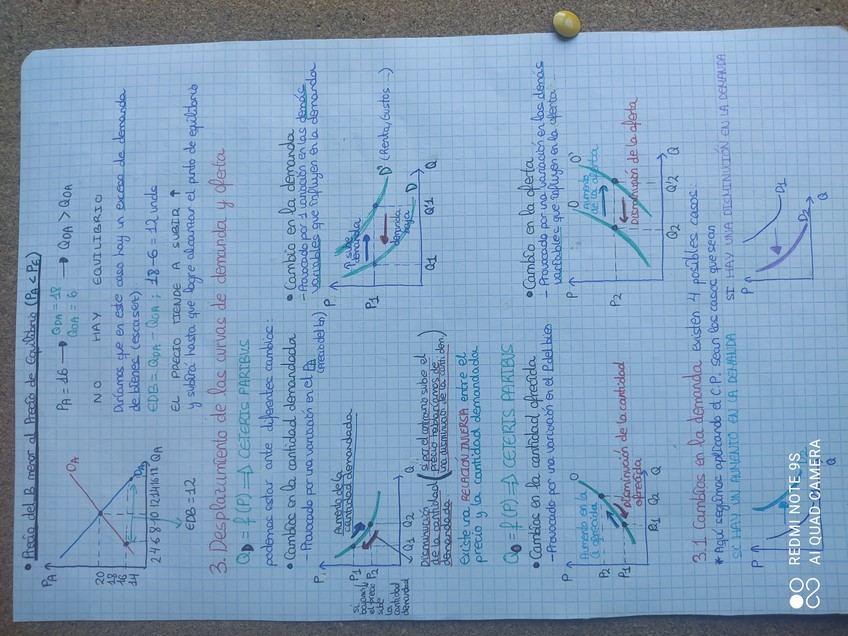 • Precio del B menor al Precio de Equilibrio (PA < PE)
PA
OA
DA
20
18
16
14
2 4 6 8 10 12 14 16 18 QA
EDB = 12
PA = 16 → QDA = 18
QOA = 6 → QDA > QOA
NO HAY EQUILIBRIO
Diríamos que en este caso hay un exceso de demanda
de bienes (escasez)
EDB = QDA - QOA ; 18 - 6 = 12 unds
EL PRECIO TIENDE A SUBIR ↑
y subirá hasta que logre alcanzar el punto de equilibrio
3. Desplazamiento de las curvas de demanda y oferta
QD = f (P) ⇒ CETERIS PARIBUS
podemos estar ante diferentes cambios:
• Cambios en la cantidad demandada
- Provocado por una variación en el PA
(precio del bn)
P
Aumento de la
cantidad demandada
P1
P2
si
bajamos
el precio
sube
la
cantidad
demandada
Q1 Q2
Q
Disminución
de la cantidad
demandada
(si por el contrario sube el
precio hablaríamos de
una disminuc. de la cantidad den.)
Existe una RELACIÓN INVERSA entre el
precio y la cantidad demandada
• Cambio en la demanda
- Provocado por 1 variación en las demás
variables que influyen en la demanda
P
P1
sube
demanda
demanda
baja
D' (Renta, Gustos ...)
D
Q1
Q'1
Q
QO = f (P) ⇒ CETERIS PARIBUS
• Cambios en la cantidad ofrecida
- Provocado por una variación en el P del bien
P
Aumento en la
Q ofrecida
O
P2
P1
disminución de la cantidad
ofrecida
Q1 Q2
Q
• Cambio en la oferta
- Provocado por una variación en las demás
variables que influyen en la oferta
P
O
O'
Aumento
de la oferta
Disminución de la oferta
P2
Q2
Q'2
Q
3.1 Cambios en la demanda: existen 4 posibles casos:
* Aquí seguimos aplicando el C.P. sean los casos que sean
SI HAY UN AUMENTO EN LA DEMANDA
SI HAY UNA DISMINUCIÓN EN LA DEMANDA
P
P
D1
D2
Q
Q
REDMI NOTE 9S
AI QUAD CAMERA